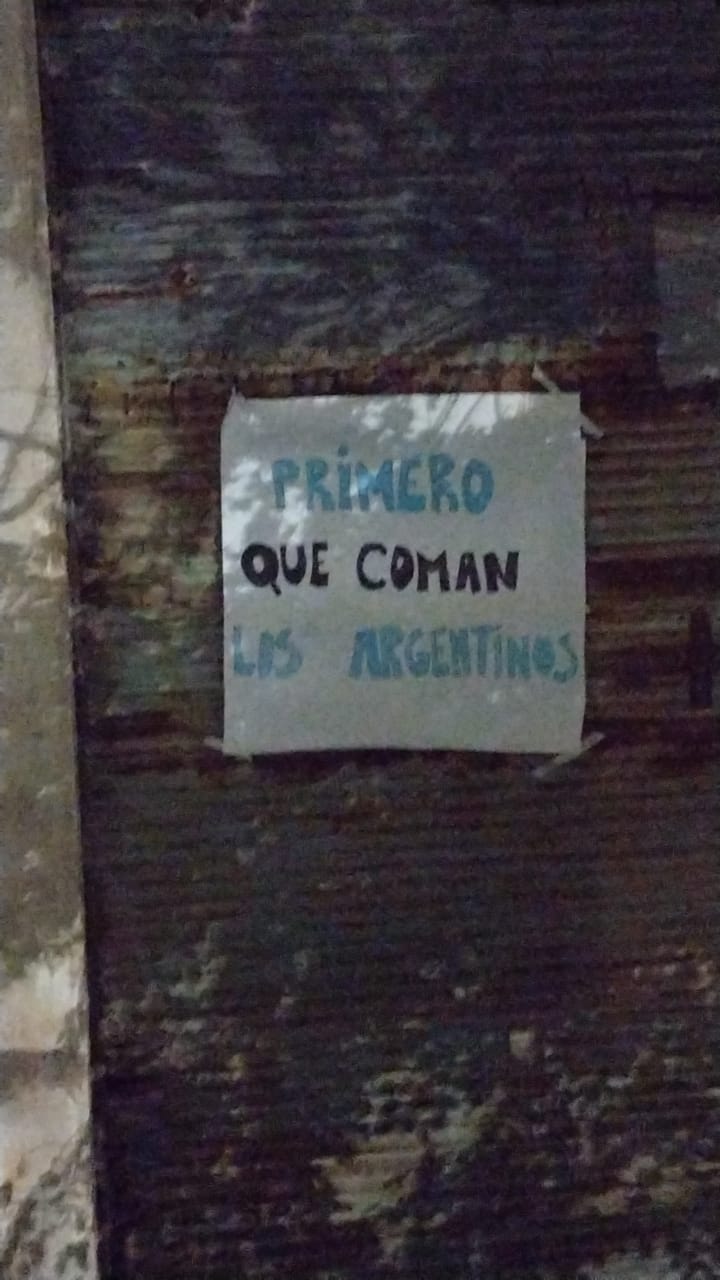 PRIMERO
QUE COMAN
LOS ARGENTINOS